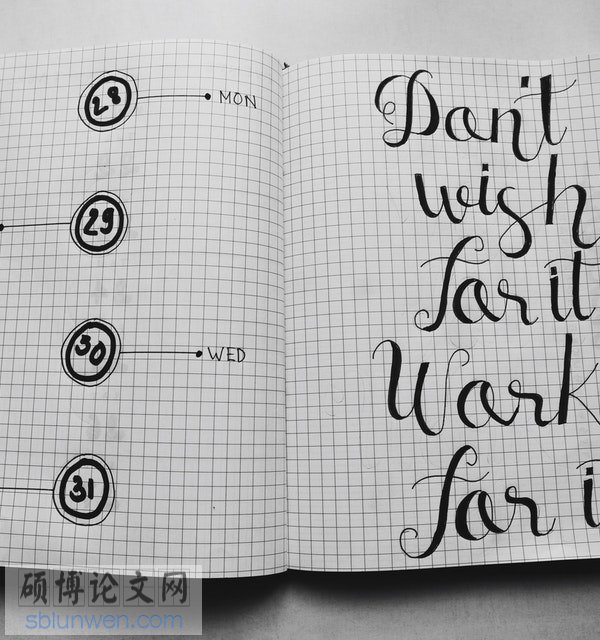 28 MON
29
30 WED
31
Don't
wish
for it
Work
for i
硕博论文网
sblunwen.com